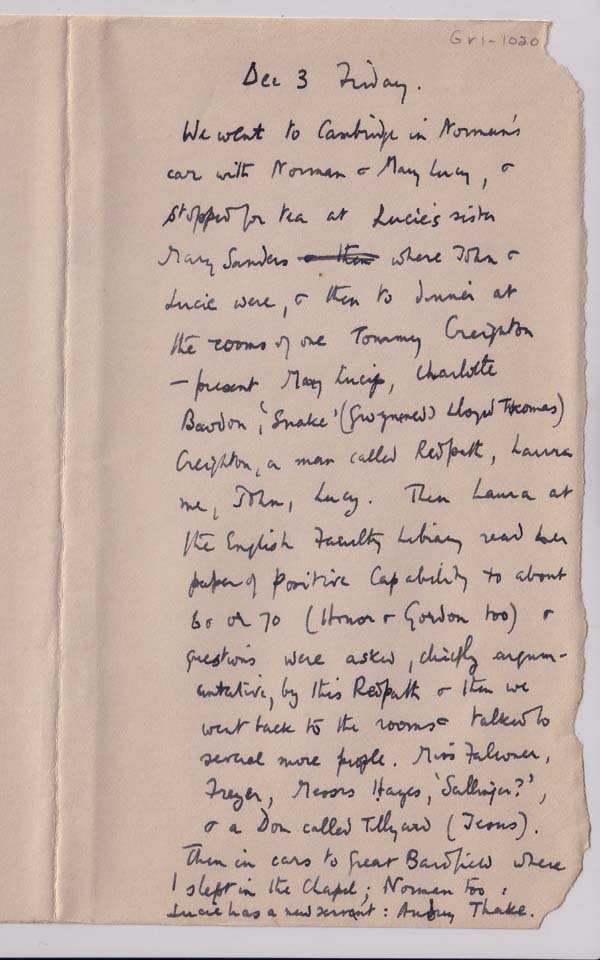 Gr1-1020
Dec 3 Friday.
We went to Cambridge in Norman's
car with Norman & Mary Lucy, &
stopped for tea at Lucie's sister
Mary Sanders & then where John &
Lucie were, & then to dinner at
the rooms of one Tommy Creighton
— present Mary Lucy, Charlotte
Bawdon, 'Snake' (Gwynned) Lloyd Thomas)
Creighton, a man called Redpath, Laura
me, John, Lucy. Then Laura at
the English Faculty Library read her
paper of Positive Capability to about
60 or 70 (Honor & Gordon too) &
questions were asked, chiefly argum-
entative, by this Redpath & then we
went back to the rooms & talked to
several more people. Miss Falconer,
Frezer, Messrs Hayes, 'Sallinjer?',
& a Don called Tillyard (Jesus).
Then in cars to Great Bardfield where
I slept in the Chapel; Norman too:
Lucie has a new servant: Audrey Thake.